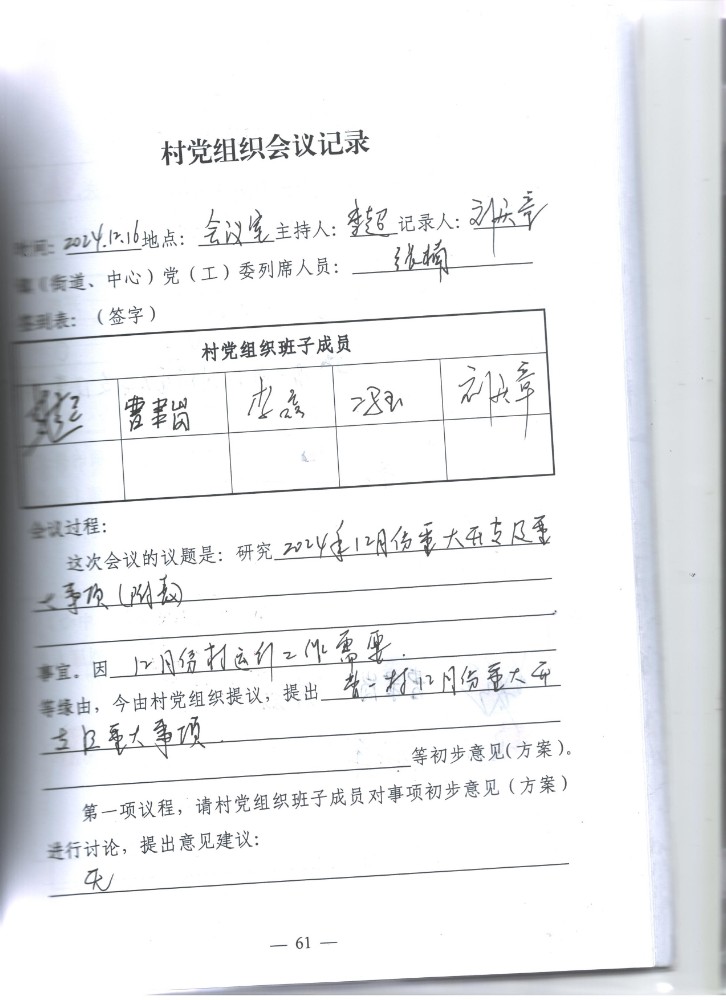 村党组织会议记录
时间：2024.12.16 地点：会议室 主持人：李超 记录人：刘庆章
镇（街道、中心）党（工）委列席人员：张楠
签到表：（签字）
村党组织班子成员
曹 刘庆章
会议过程：
这次会议的议题是：研究 2024年12月份重大开支及重
大事项（附表）
事宜。因 12月份村运行工作需要.
等缘由，今由村党组织提议，提出 曹一村12月份重大开
支及重大事项.
等初步意见（方案）。
第一项议程，请村党组织班子成员对事项初步意见（方案）
进行讨论，提出意见建议：
无
— 61 —